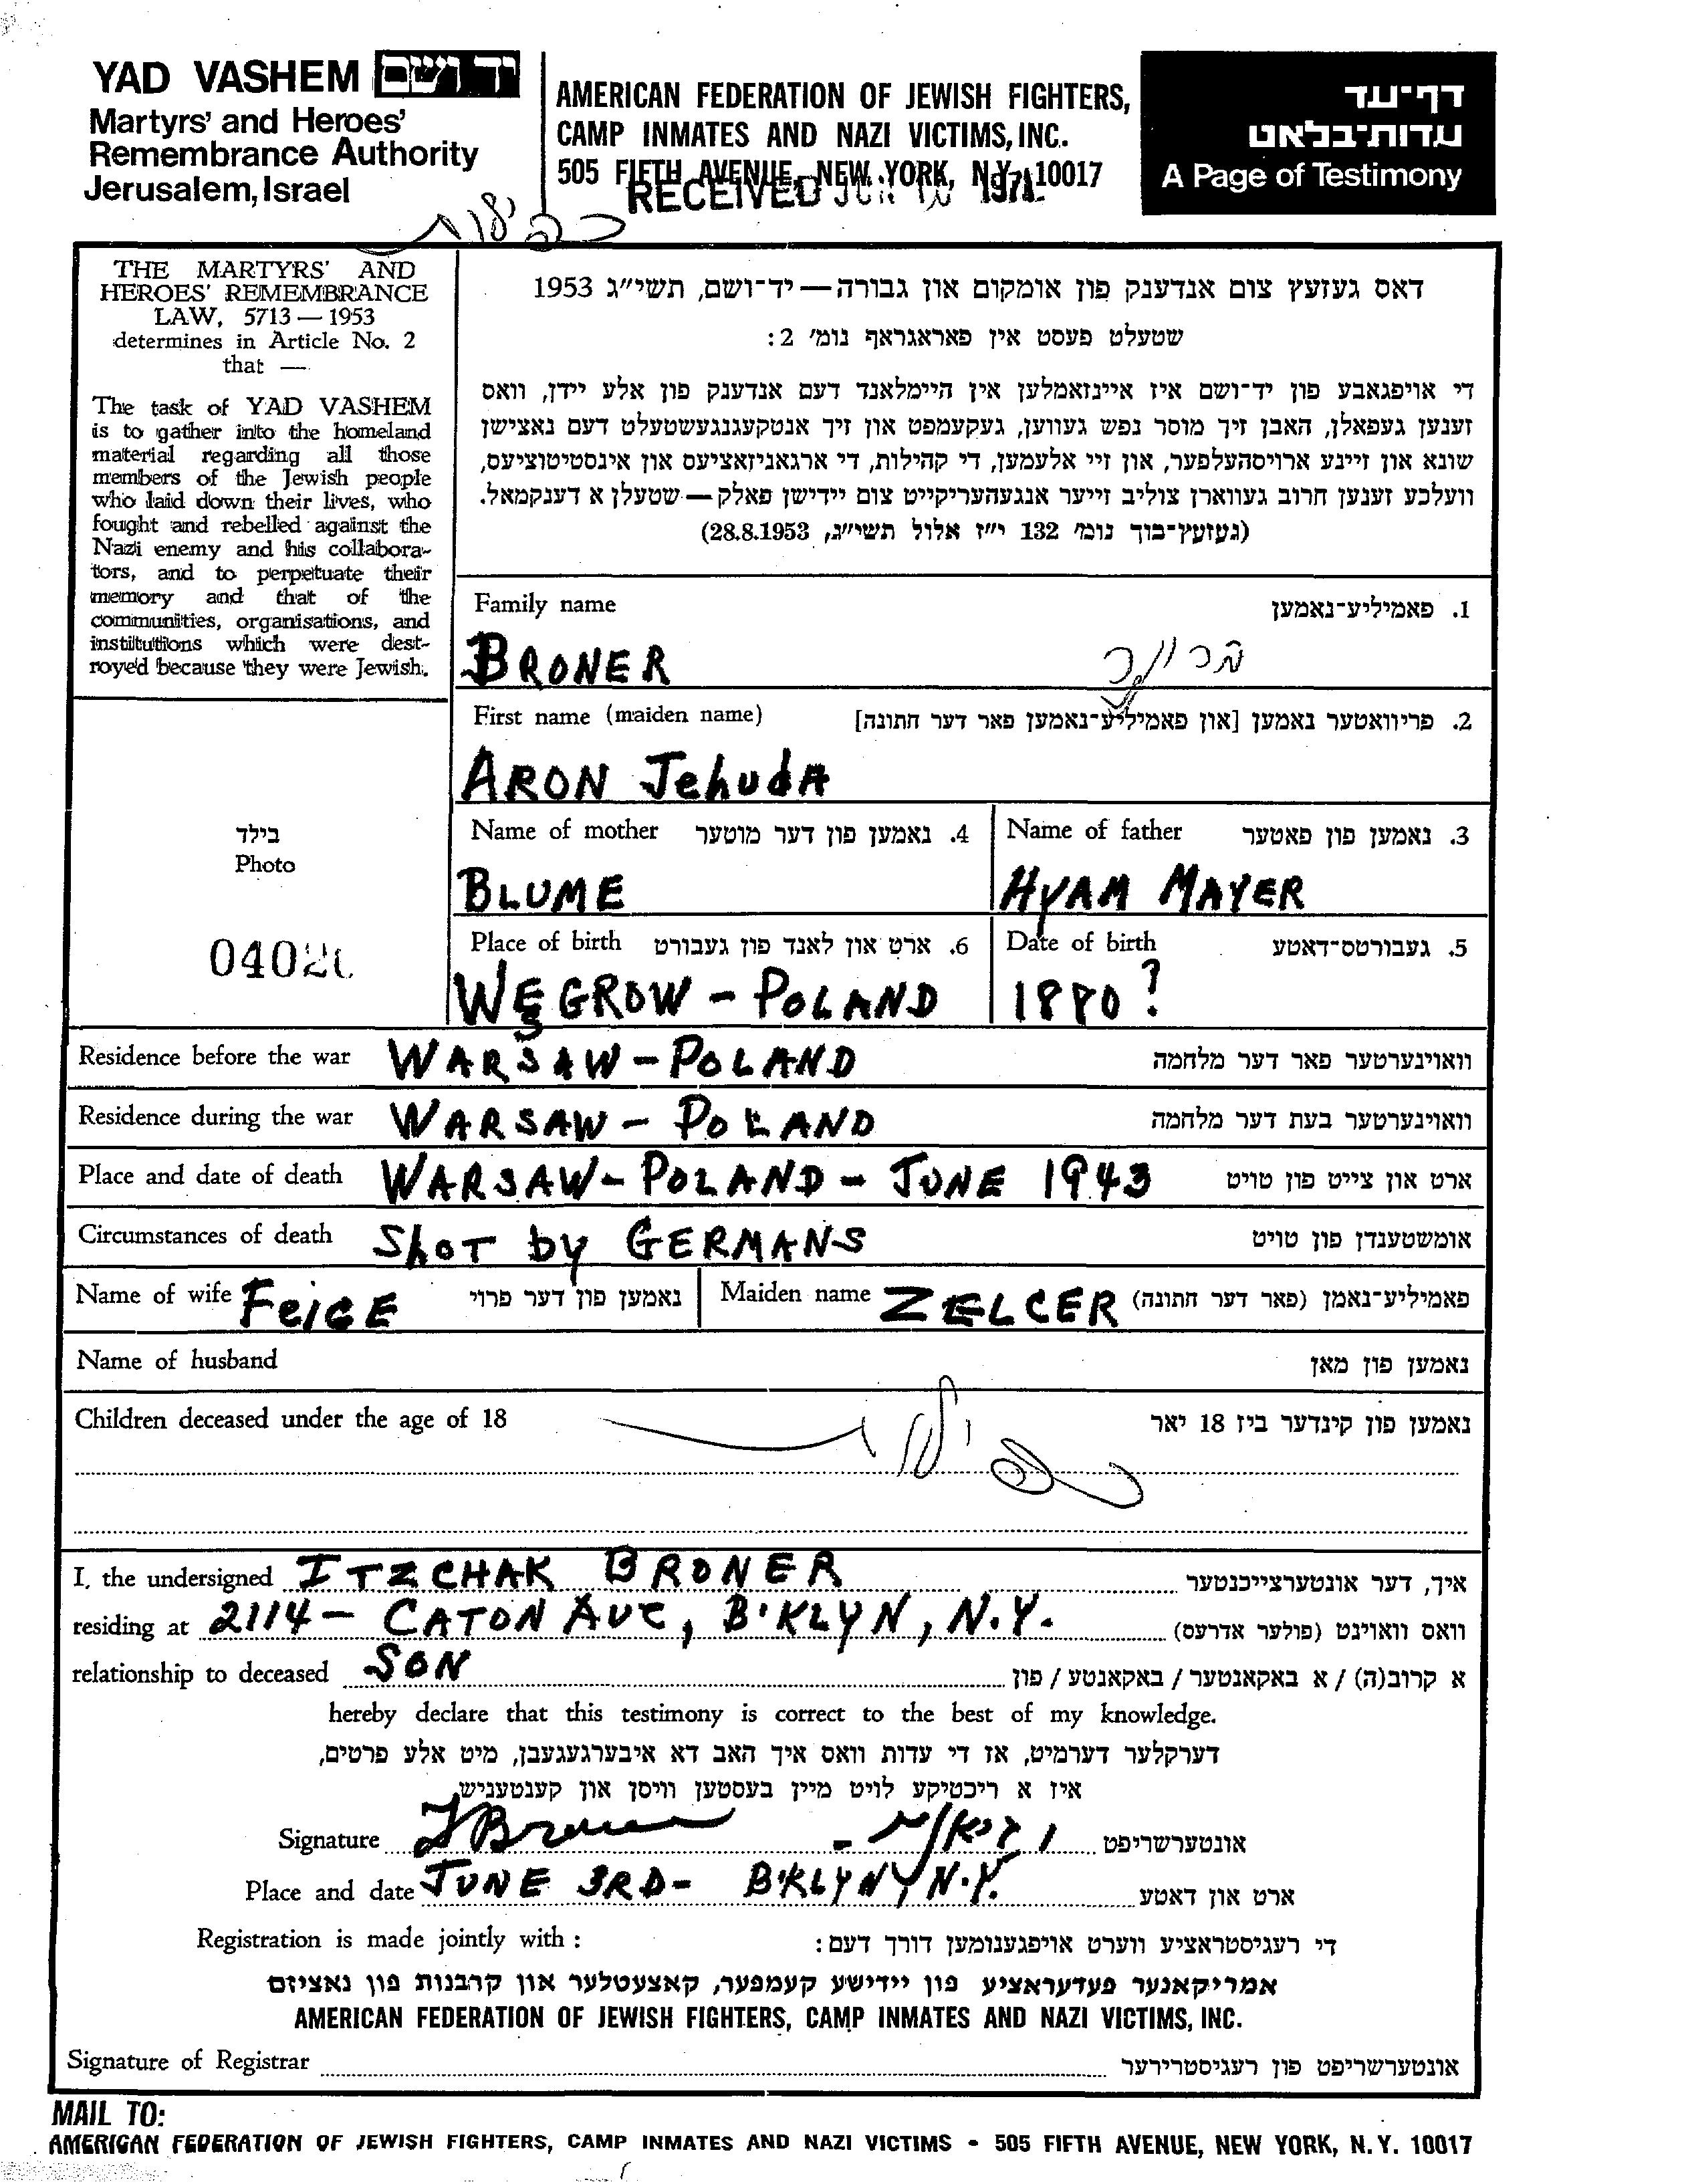 YAD VASHEM יד ושם
Martyrs' and Heroes'
Remembrance Authority
Jerusalem, Israel
AMERICAN FEDERATION OF JEWISH FIGHTERS,
CAMP INMATES AND NAZI VICTIMS, INC.
505 FIFTH AVENUE, NEW YORK, N.Y. 10017
RECEIVED
דף-עד
עדות-בלאט
A Page of Testimony
THE MARTYRS' AND
HEROES' REMEMBRANCE
LAW, 5713 — 1953
determines in Article No. 2
that —
The task of YAD VASHEM
is to gather into the homeland
material regarding all those
members of the Jewish people
who laid down their lives, who
fought and rebelled against the
Nazi enemy and his collabora-
tors, and to perpetuate their
memory and that of the
communities, organisations, and
institutions which were dest-
royed because they were Jewish.
דאס געזעץ צום אנדענק פון אומקום און גבורה — יד-ושם, תשי"ג 1953
שטעלט פעסט אין פאראגראף נומ' 2:
די אויפגאבע פון יד-ושם איז איינזאמלען אין היימלאנד דעם אנדענק פון אלע יידן, וואס
זענען געפאלן, האבן זיך מוסר נפש געווען, געקעמפט און זיך אנטקעגנגעשטעלט דעם נאצישן
שונא און זיינע ארויסהעלפער, און זיי אלעמען, די קהילות, די ארגאניזאציעס און אינסטיטוציעס,
וועלכע זענען חרוב געווארן צוליב זייער אנגעהעריקייט צום יידישן פאלק — שטעלן א דענקמאל.
(געזעץ-בוך נומ' 132 י"ז אלול תשי"ג, 28.8.1953)
Family name 1. פאמיליע-נאמען
BRONER
First name (maiden name) 2. פריוואטער נאמען [און פאמיליע-נאמען פאר דער חתונה]
ARON JehudA
Name of mother 4. נאמען פון דער מוטער Name of father 3. נאמען פון פאטער
BLUME HYAM MAYER
Place of birth 6. ארט און לאנד פון געבורט Date of birth 5. געבורטס-דאטע
WĘGROW - POLAND 1880?
בילד
Photo
Residence before the war WARSAW - POLAND וואוינערטער פאר דער מלחמה
Residence during the war WARSAW - POLAND וואוינערטער בעת דער מלחמה
Place and date of death WARSAW - POLAND - JUNE 1943 ארט און צייט פון טויט
Circumstances of death ShOT by GERMANS אומשטענדן פון טויט
Name of wife FeiGE נאמען פון דער פרוי Maiden name ZELCER פאמיליע-נאמן (פאר דער חתונה)
Name of husband נאמען פון מאן
Children deceased under the age of 18 נאמען פון קינדער ביז 18 יאר
I, the undersigned ITZCHAK BRONER איך, דער אונטערצייכנטער
residing at 2114 - CATON AVE, B'KLYN, N.Y. וואס וואוינט (פולער אדרעס)
relationship to deceased SON א קרוב(ה) / א באקאנטער / באקאנטע / פון
hereby declare that this testimony is correct to the best of my knowledge.
דערקלער דערמיט, אז די עדות וואס איך האב דא איבערגעגעבן, מיט אלע פרטים,
איז א ריכטיקע לויט מיין בעסטען וויסן און קענטעניש
Signature I Broner אונטערשריפט
Place and date JUNE 3RD - B'KLYN, N.Y. ארט און דאטע
Registration is made jointly with : די רעגיסטראציע ווערט אויפגענומען דורך דעם:
אמריקאנער פעדעראציע פון יידישע קעמפער, קאצעטלער און קרבנות פון נאציזם
AMERICAN FEDERATION OF JEWISH FIGHTERS, CAMP INMATES AND NAZI VICTIMS, INC.
Signature of Registrar אונטערשריפט פון רעגיסטרירער
MAIL TO:
AMERICAN FEDERATION OF JEWISH FIGHTERS, CAMP INMATES AND NAZI VICTIMS - 505 FIFTH AVENUE, NEW YORK, N.Y. 10017